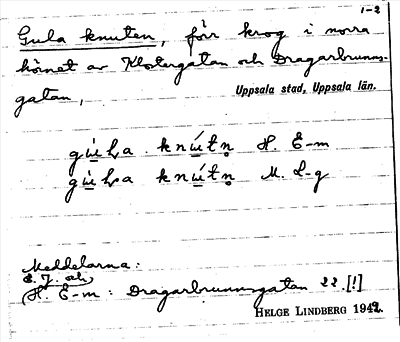 1-2
Gula knuten, förr krog i norra
hörnet av Klostergatan och Dragarbrunns-
gatan,
Uppsala stad, Uppsala län.
H. E-m
M. L-g
Meddelarna:
E. J. och
H. E-m: Dragarbrunnsgatan 22 [!]
HELGE LINDBERG 1942.